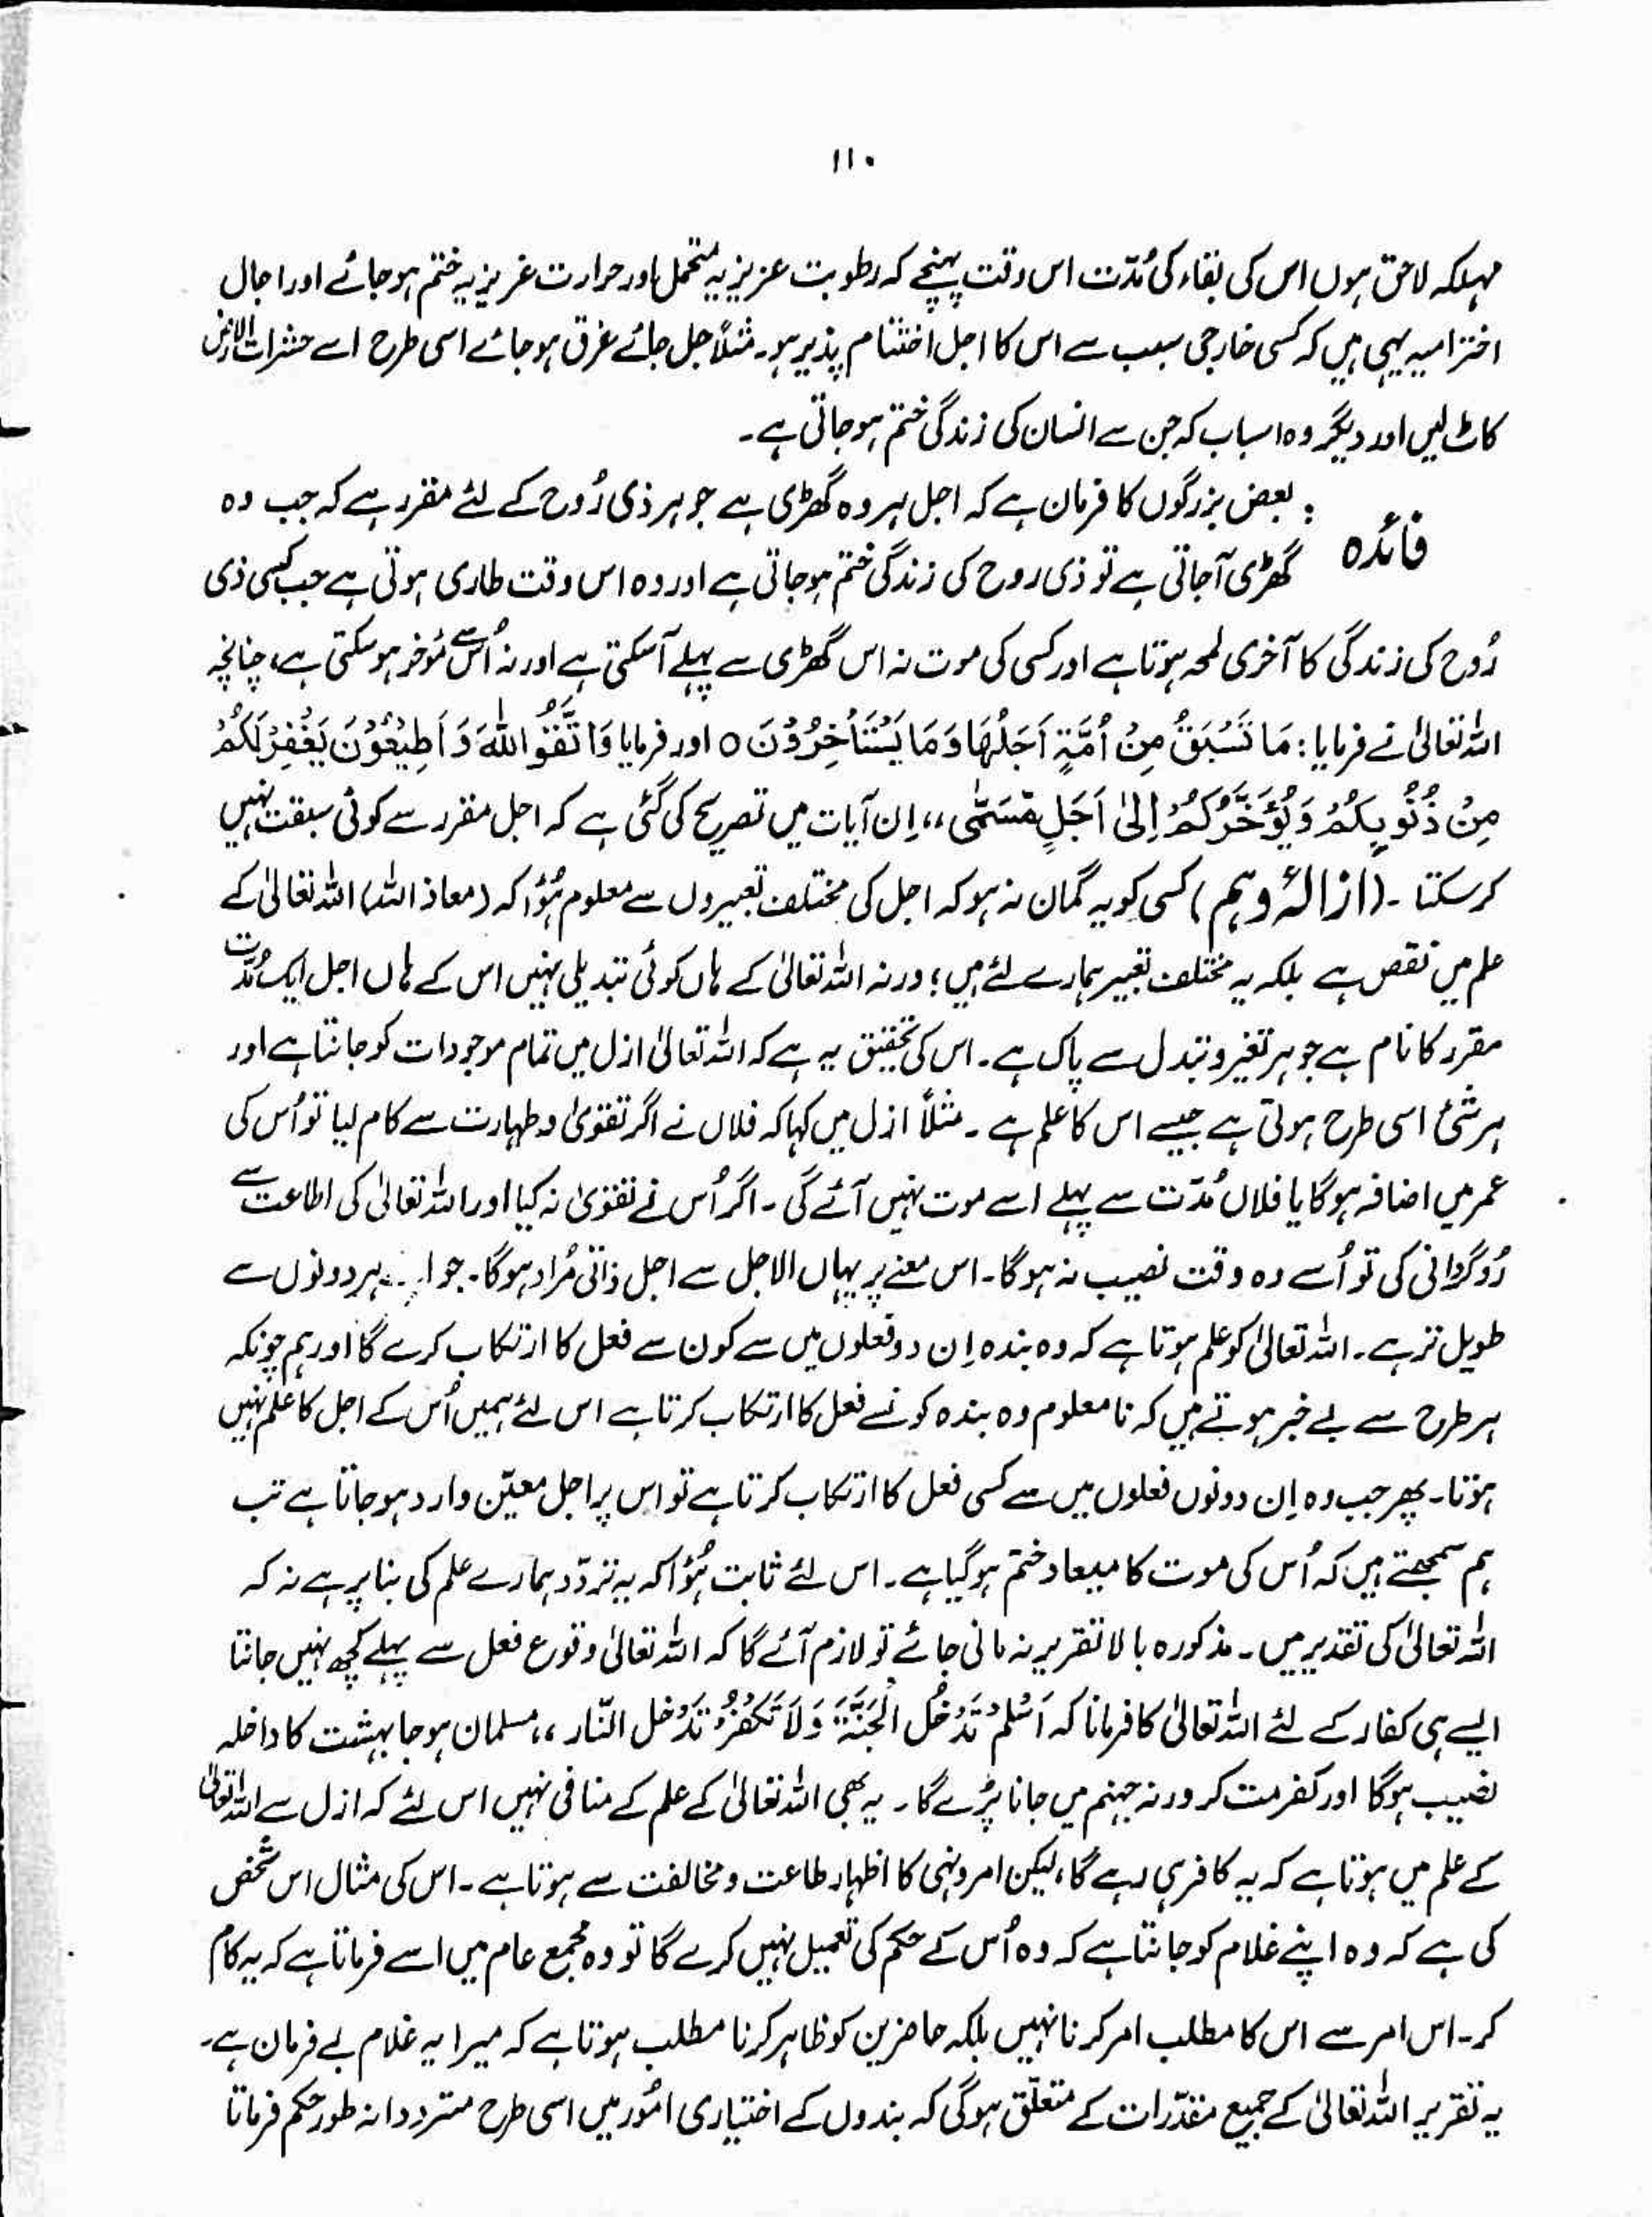 ۱۱۰
مہلکہ لاحق ہوں اس کی بقاء کی مُدّت اس وقت پہنچے کہ رطوبت عزیزیہ متحمل اور حرارت غریزیہ ختم ہو جائے اور اجال
اخترامیہ یہی ہیں کہ کسی خارجی سبب سے اس کا اجل اختتام پذیر ہو۔ مثلاً جل جائے غرق ہو جائے اسی طرح اسے حشرات الارض
کاٹ لیں اور دیگر وہ اسباب کہ جن سے انسان کی زندگی ختم ہو جاتی ہے۔
فائدہ : بعض بزرگوں کا فرمان ہے کہ اجل ہر وہ گھڑی ہے جو ہر ذی رُوح کے لئے مقرر ہے کہ جب وہ
گھڑی آجاتی ہے تو ذی روح کی زندگی ختم ہو جاتی ہے اور وہ اس وقت طاری ہوتی ہے جب کسی ذی
رُوح کی زندگی کا آخری لمحہ ہوتا ہے اور کسی کی موت نہ اس گھڑی سے پہلے آسکتی ہے اور نہ اُس سے مُوخر ہو سکتی ہے، چنانچہ
اللہ تعالیٰ نے فرمایا: مَا تَسْبَقُ مِنْ اُمَّۃٍ اَجَلُھَا وَمَا یَسْتَأْخِرُوْنَ ٥ اور فرمایا وَاتَّقُو اللہَ وَ اَطِیْعُوْنَ یَغْفِرْ لَکُمْ
مِنْ ذُنُوبِکُمْ وَیُؤَخَّرْکُمْ اِلیٰ اَجَلٍ مّسَمّٰی،، اِن آیات میں تصریح کی گئی ہے کہ اجل مقرر سے کوئی سبقت نہیں
کر سکتا ۔ (ازالۂ وہم) کسی کو یہ گمان نہ ہو کہ اجل کی مختلف تعبیروں سے معلوم ہُؤا کہ (معاذ اللہ) اللہ تعالیٰ کے
علم میں نقص ہے بلکہ یہ مختلف تعبیر ہمارے لئے ہیں؛ ورنہ اللہ تعالیٰ کے ہاں کوئی تبدیلی نہیں اس کے ہاں اجل ایک مُدّت
مقرر کا نام ہے جو ہر تغیر و تبدل سے پاک ہے۔ اس کی تحقیق یہ ہے کہ اللہ تعالیٰ ازل میں تمام موجودات کو جانتا ہے اور
ہر شئ اسی طرح ہوتی ہے جیسے اس کا علم ہے ۔ مثلاً ازل میں کہا کہ فلاں نے اگر تقویٰ و طہارت سے کام لیا تو اُس کی
عمر میں اضافہ ہو گا یا فلاں مُدّت سے پہلے اسے موت نہیں آئے گی ۔ اگر اُس نے تقویٰ نہ کیا اور اللہ تعالیٰ کی اطاعت سے
رُوگردانی کی تو اُسے وہ وقت نصیب نہ ہو گا۔ اس معنے پر یہاں الاجل سے اجل ذاتی مُراد ہو گا۔ جو ہر دونوں سے
طویل تر ہے۔ اللہ تعالیٰ کو علم ہوتا ہے کہ وہ بندہ اِن دو فعلوں میں سے کون سے فعل کا ارتکاب کرے گا اور ہم چونکہ
ہر طرح سے بے خبر ہوتے ہیں کہ نامعلوم وہ بندہ کونسے فعل کا ارتکاب کرتا ہے اس لئے ہمیں اُس کے اجل کا علم نہیں
ہوتا۔ پھر جب وہ اِن دونوں فعلوں میں سے کسی فعل کا ارتکاب کرتا ہے تو اس پر اجل معیّن وارد ہو جاتا ہے تب
ہم سمجھتے ہیں کہ اُس کی موت کا میعاد ختم ہو گیا ہے۔ اس لئے ثابت ہُؤا کہ یہ تردّد ہمارے علم کی بنا پر ہے نہ کہ
اللہ تعالیٰ کی تقدیر میں ۔ مذکورہ بالا تقریر نہ مانی جائے تو لازم آئے گا کہ اللہ تعالیٰ وقوع فعل سے پہلے کچھ نہیں جانتا
ایسے ہی کفار کے لئے اللہ تعالیٰ کا فرمانا کہ اَسْلِمْ تَدْخُل الْجَنَّۃَ وَلَا تَکْفُرْ تَدْخل النّار ،، مسلمان ہو جا بہشت کا داخلہ
نصیب ہو گا اور کفر مت کر ورنہ جہنم میں جانا پڑے گا ۔ یہ بھی اللہ تعالیٰ کے علم کے منافی نہیں اس لئے کہ ازل سے اللہ تعالیٰ
کے علم میں ہوتا ہے کہ یہ کافر ہی رہے گا، لیکن امر و نہی کا اظہار طاعت و مخالفت سے ہوتا ہے ۔ اس کی مثال اس شخص
کی ہے کہ وہ اپنے غلام کو جانتا ہے کہ وہ اُس کے حکم کی تعمیل نہیں کرے گا تو وہ مجمع عام میں اسے فرماتا ہے کہ یہ کام
کر۔ اس امر سے اس کا مطلب امر کرنا نہیں بلکہ حاضرین کو ظاہر کرنا مطلب ہوتا ہے کہ میرا یہ غلام بے فرمان ہے۔
یہ تقریر اللہ تعالیٰ کے جمیع مقدّرات کے متعلّق ہو گی کہ بندوں کے اختیاری امُور میں اسی طرح مترددانہ طور حکم فرماتا